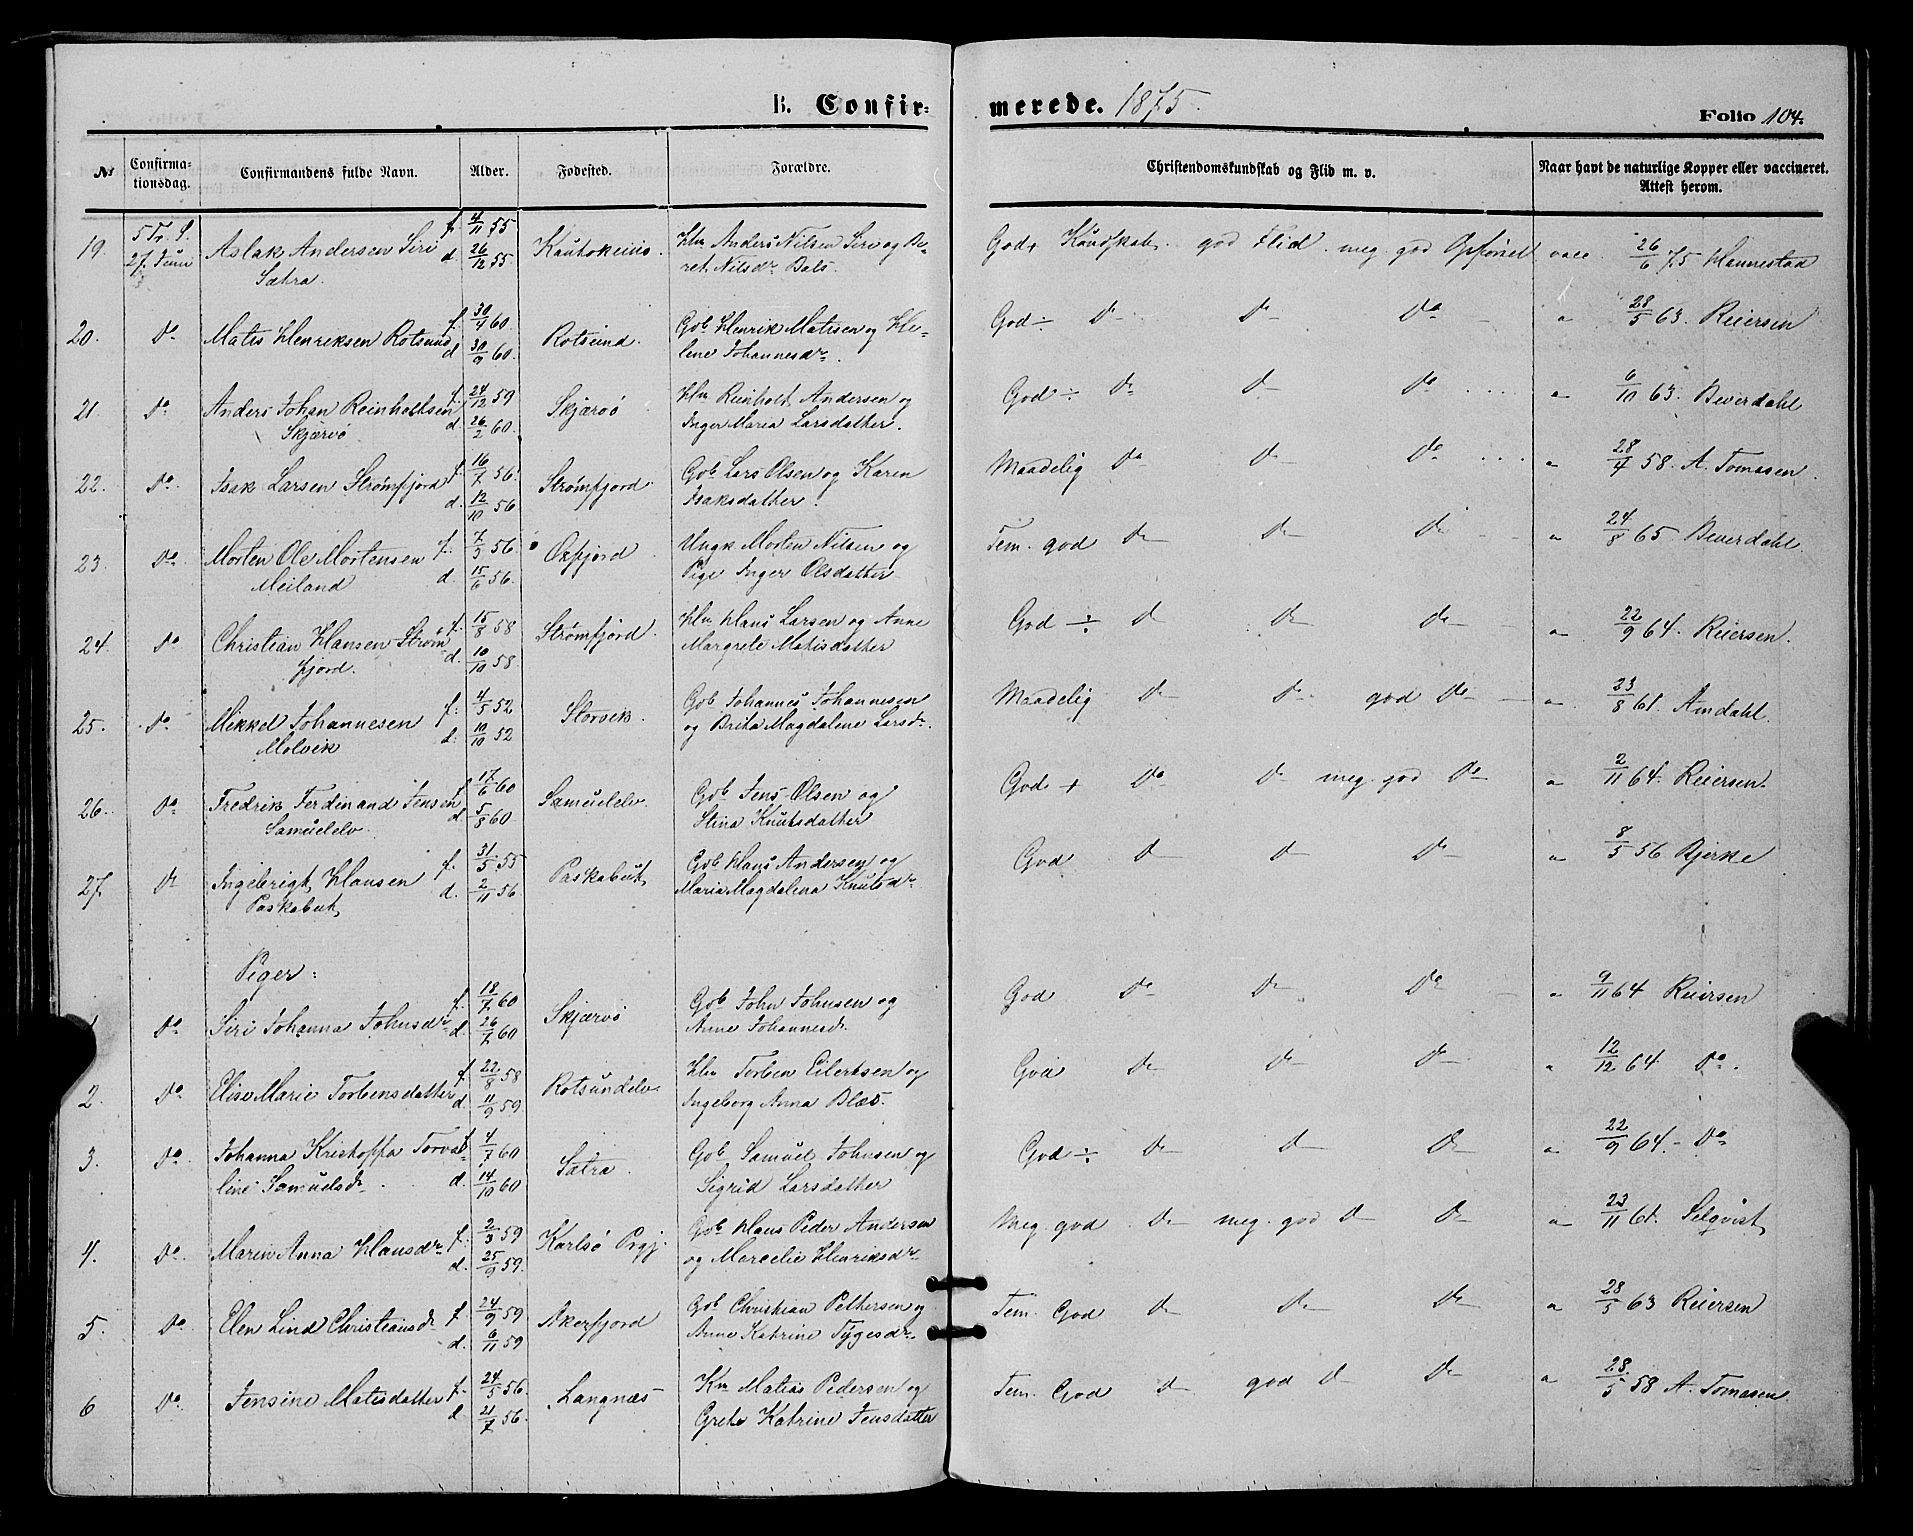 B. Confirmerede. 1875. Folio 104.
№ Confirmationsdag. Confirmandens fulde Navn. Alder. Fødested. Forældre. Christendomskundskab og Flid m. v. Naar havt de naturlige Kopper eller vaccineret. Attest herom.
19. 5 Tr. S. 27. Juni Aslak Andersen Siri f. 4/11 55 Kautokeino. Hm Anders Nilsen Siri og Be- God + Kundskab. god Flid. meg. god Opførsel vacc. 26/6 75 Hannestad
Sætra. d. 26/12 55 ret Nilsdr Bals.
20. Do Matis Henriksen Rotsund f. 30/4 60 Rotsund. Gbb Henrik Matisen og He- God ÷ Do Do Do " 28/5 63. Reiersen
d. 30/9 60. lene Johannesdr.
21. Do Anders Johan Reinholtsen f. 24/12 59 Skjærvö Hm Reinholt Andersen og God ÷ Do Do Do " 6/10 63. Beverdahl
Skjærvö d. 26/2 60. Inger Maria Larsdatter.
22. Do Isak Larsen Strømfjord f. 16/7 56. Strømfjord. Gbb Lars Olsen og Karen Maadelig Do Do Do " 28/4 58. A. Tomasen.
d. 12/10 56 Isaksdatter.
23. Do Morten Ole Mortensen f. 7/3 56. Oxfjord Ungk Morten Nilsen og Tem. god Do Do Do " 24/8 65 Beverdahl.
Meiland d. 15/6 56. Pige Inger Olsdatter
24. Do Christian Hansen Strøm f. 15/8 58 Strømfjord. Hm Hans Larsen og Anne God ÷ Do Do Do " 22/9 64. Reiersen.
fjord. d. 10/10 58. Margrete Matisdatter
25. Do Mikkel Johannesen f. 4/5 52 Storvik. Gbb Johannes Johannesen Maadelig Do Do god Do " 23/8 61. Amdahl.
Molvik d. 10/10 52 og Brita Magdalene Larsdr.
26. Do Fredrik Ferdinand Jensen f. 17/6 60 Samuelelv. Gbb Jens Olsen og God + Do Do meg. god Do " 2/11 64. Reiersen.
Samuelelv. d. 5/8 60 Stina Knutsdatter
27. Do Ingebrigt Hansen f. 31/5 55 Paskabut Gbb Hans Andersen og God Do Do Do " 8/5 56 Bjerke
Paskabut d. 2/11 56. Maria Magdalena Knutsdr
Piger:
1 Do Siri Johanna Johnsdr f. 18/7 60 Skjærvö Gbb John Johnsen og God Do Do Do " 9/11 64 Reiersen
d. 26/7 60 Anne Johannesdr
2. Do Elise Marie Torbensdatter f. 22/8 58 Rotsundelv. Hm Torben Eilertsen og God Do Do Do " 12/12 64 Do.
d. 11/9 59 Ingeborg Anna Blæs.
3. Do Johanna Kristoffa Torva- f. 4/7 60 Sætra. Gbb Samuel Johnsen og God ÷ Do Do Do " 22/9 64. Do
line Samuelsdr d. 14/10 60 Sigrid Larsdatter
4. Do Maren Anna Hansdr f. 2/3 59 Karlsö Prgj. Gbb Hans Peder Andersen Meg. god. Do meg. god Do Do " 23/11 61. Selqvist
d. 25/9 59. og Marcelie Henriksdr
5. Do Elen Lind Christiansdr f. 24/9 59 Akerfjord Gbb Christian Pettersen og Tem. God Do Do Do " 28/5 63 Reiersen
d. 6/11 59 Anne Katrine Tygesdr
6 Do Jensine Matisdatter f. 24/5 56. Langnæs Km Matias Pedersen og Tem. God Do god Do Do " 28/5 58 A. Tomasen.
d. 21/7 56. Grete Katrine Jensdatter